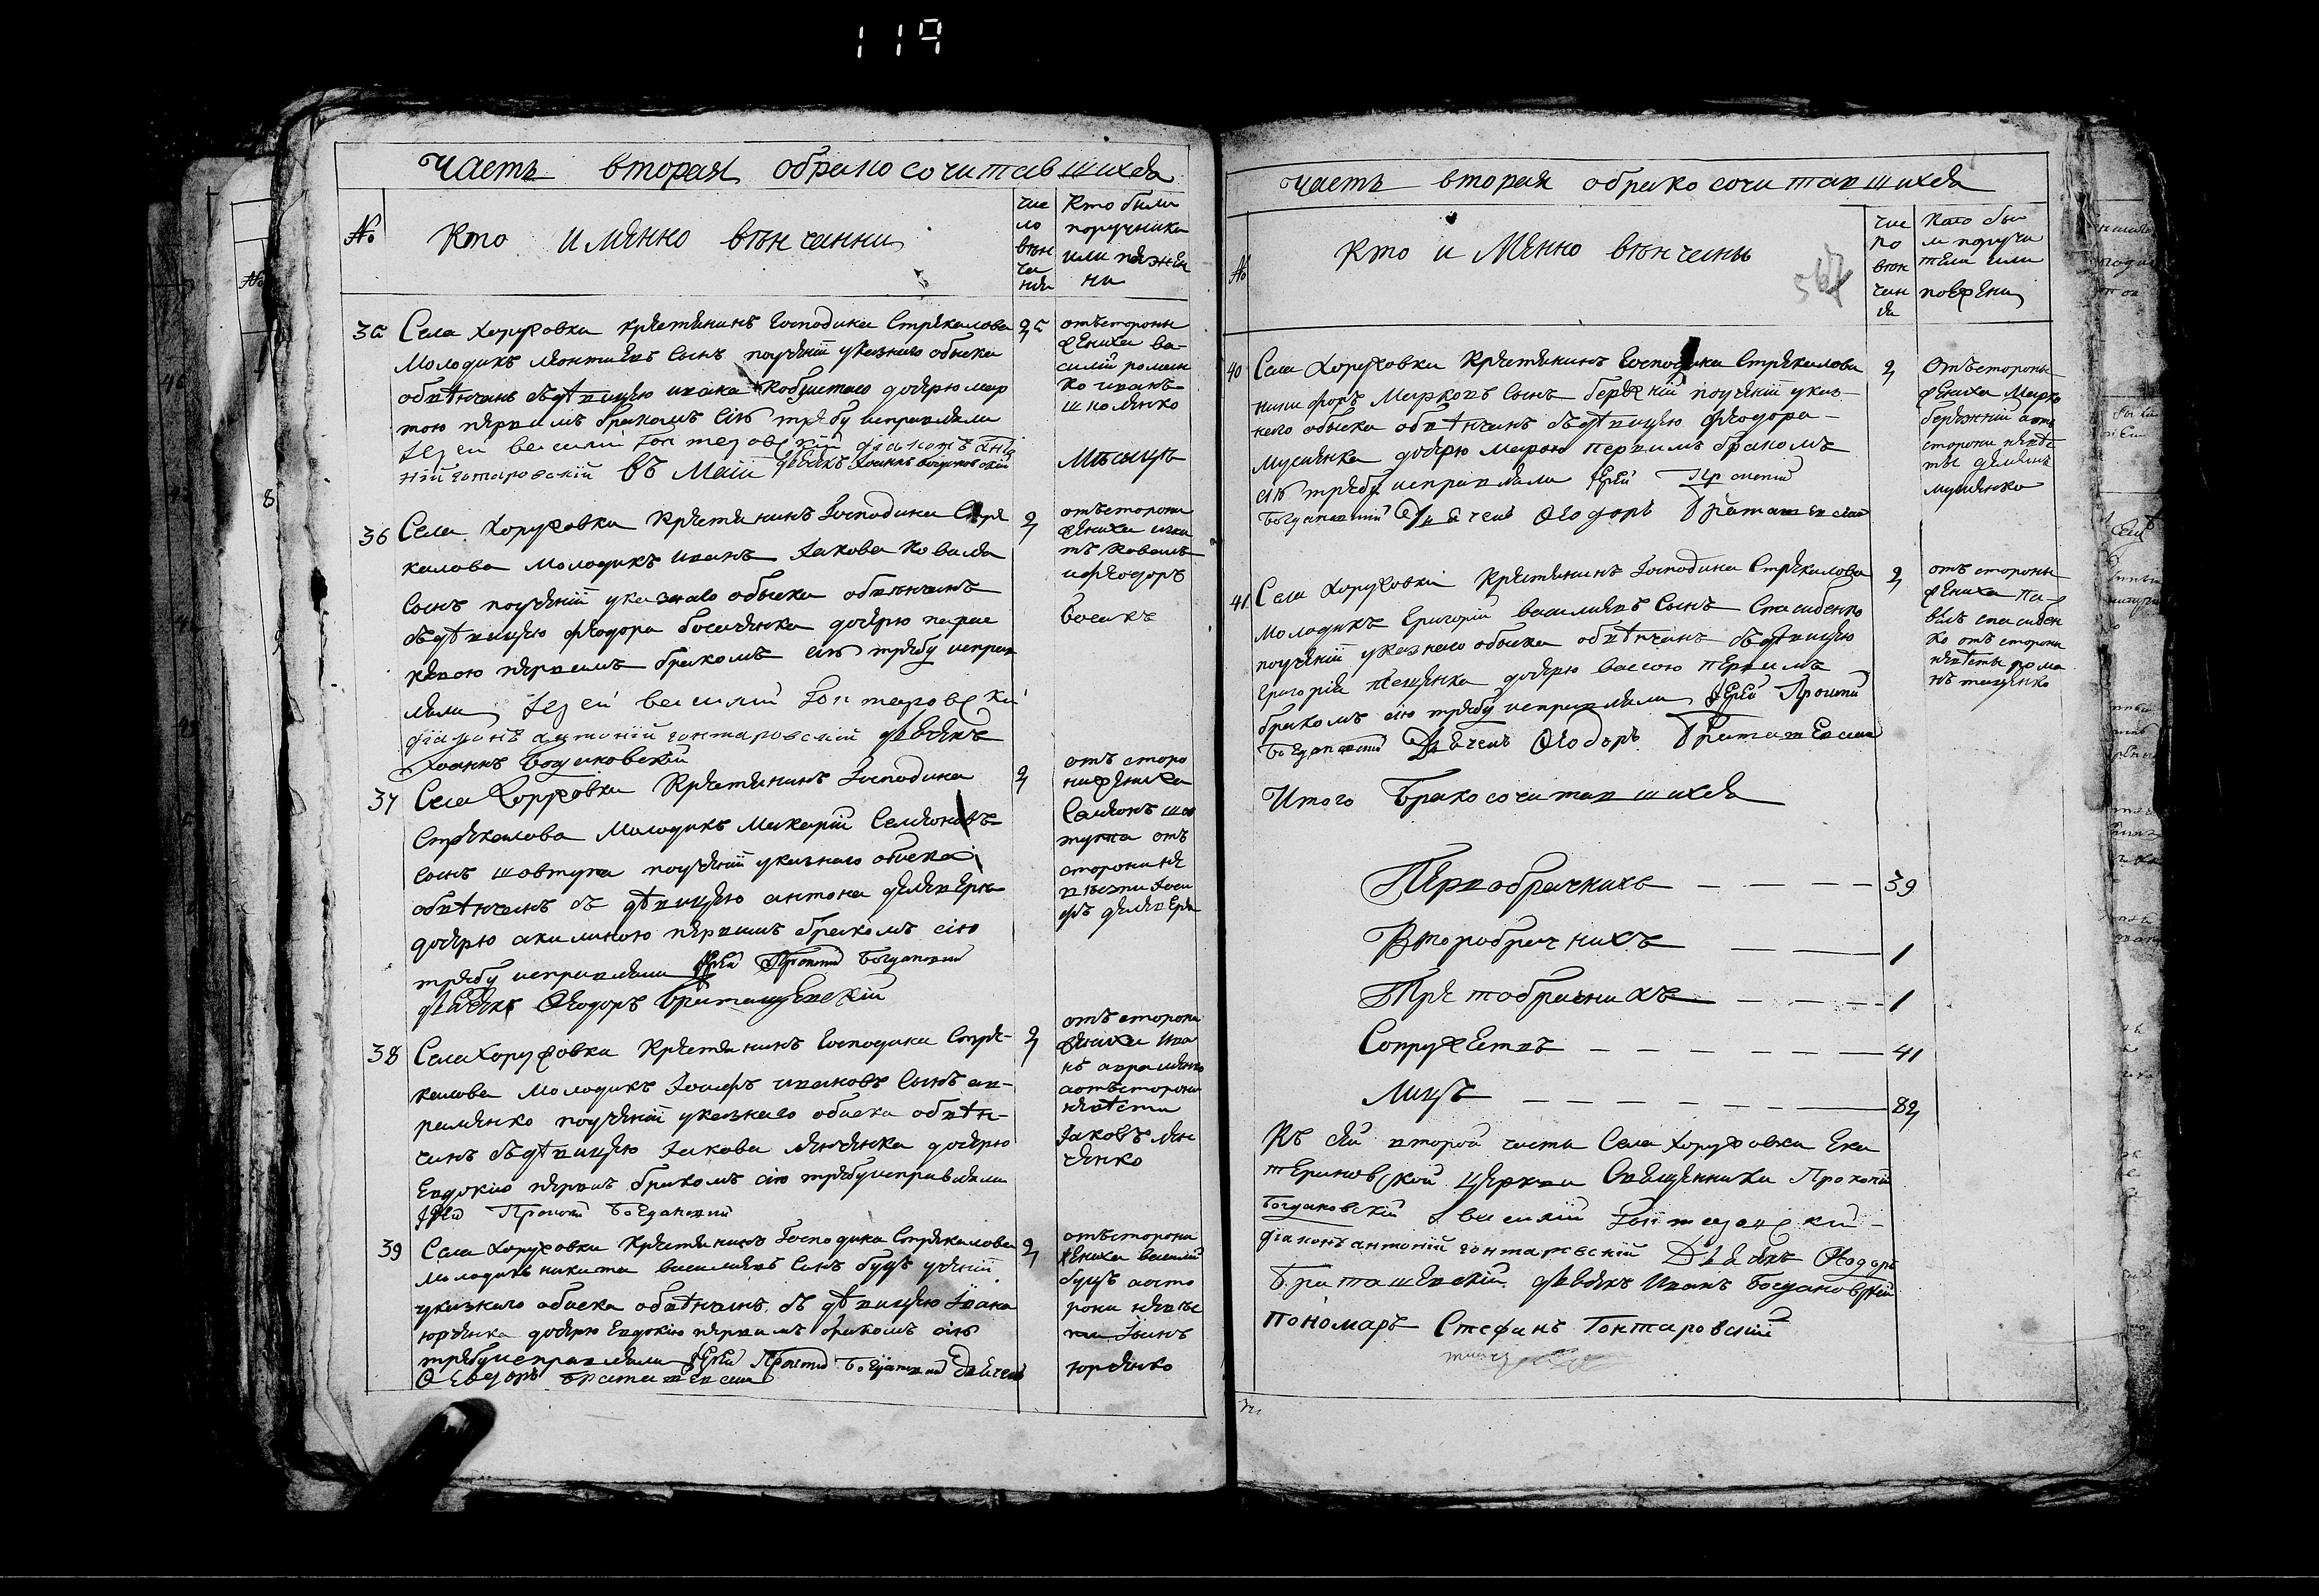 119
часть вторая обракосочитавшихся
№
Кто имянно вѣнчанни
чис
ло
вѣн
ча
ния
Кто были
поручники
или
ни
35
Села Хоружовки крестянинъ Господина Стрекалова
молодикъ сынъ поучинѣ указнаго обыска
обвѣнчанъ съ дѣвицею дочерю мар
тою первимъ бракомъ сію требу исправляли
Іерей василій Гонтаровскій діаконъ анто
ній гонтаровскій
25
отъ стороны
жениха ва-
силій роман
ко иванъ
школенко
въ Маіи
Мѣсяцѣ
36
Села Хоружовки Крестянинъ Господина Стре
калова молодикъ иванъ Іакова коваля
сынъ поучинѣ указнаго обыска обвѣнчанъ
съ дѣвицею феодора босаченка дочерю параске
кевою первимъ бракомъ сію требу исправ
ляли Іерей василий Гонтаровски
діаконъ антоній гонтаровскій дьячекъ
Іоаннъ Богдановскій
2
отъ сторони
жениха
коваль
ифеодоръ
босакъ
37
Села Хоружовки Крестянинъ Господина
Стрекалова молодикъ Макарій Семионовъ
сынъ шовтупа поучинѣ указнаго обиска
обвѣнчанъ съ дѣвицею антона
дочерю акилиною первимъ бракомъ сію
требу исправляли Іерей Прокопій Богдановскій
дьячекъ Феодоръ Браташевскій
2
отъ сторо
ни жениха
Семионъ шов
тупа отъ
сторони не
вѣсти Іоси
фъ
38
Села Хоружовки Крестянинъ Господина Стре-
калова молодикъ Іосифъ ивановъ сынъ ав-
раменко поучинѣ указнаго обиска обвѣн-
чанъ съ дѣвицею Іакова дочерю
Евдокію первимъ бракомъ сію требу исправляли
Іерей Прокопій Богдановскій
2
отъ сторони
жениха Ива
нъ авраменко
а отъ сторони
невѣсти
Іаковъ
39
Села Хоружовки Крестянинъ Господина Стрекалова
молодикъ никита василиевъ сынъ буцъ
указнаго обиска обвѣнчанъ съ дѣвицею Івана
юрченка дочерю Евдокію первимъ бракомъ сію
требу исправляли Іерей Прокопій Богдановскій Дьячекъ
Феодоръ Браташевскій
2
отъ сторони
жениха василій
буцъ а отъ сто
рони невѣс
ти Іванъ
юрченко
часть вторая обракосочитавшихся
№
Кто и Мянно вѣнчаны
чис
ло
вѣн
чан
ия
Кто бы
ли поручи
тели или
поезжени
40
Села Хоружовки Крестянинъ Господина Стрекалова
никифоръ Марковъ сынъ бережній поучинѣ указ-
наго обыска обвѣнчанъ съ дѣвицею Феодора
мусиенка дочерю марою первимъ бракомъ
сію требу исправляли Іерей Прокопій
Богдановскій Дьячекъ Феодоръ Браташевский
2
Отъ стороны
жениха Марко
бережній а отъ
стороны невѣс
ты
мусиенко
41
Села Хоружовки Крестянинъ Господина Стрекалова
молодикъ Григорій василиевъ сынъ Спасибенко
поучинѣ указнаго обыска обвѣнчанъ съ дѣвицею
Григорія тещенка дочерю васою первимъ
бракомъ сію требу исправляли Іерей Прокопій
Богдановский Дьячекъ Феодоръ Браташевский
2
отъ стороны
жениха Па-
велъ спасибен
ко отъ сторони
невѣсты рома
нъ тещенко
Итого Бракосочитавшихся
Первобрачнихъ 39
Второбрачнихъ 1
Третобрачнихъ 1
Супружествъ 41
Лицъ 82
Къ сей второй части Села Хоружовки Ека
териновской церкви Священники Прокопій
Богдановскій и василий Гонтаровский
Діаконъ антоній гонтаровскій Дьячокъ Феодоръ
Браташевский дьячокъ Иванъ Богдановский
Пономаръ Стефанъ Гонтаровский